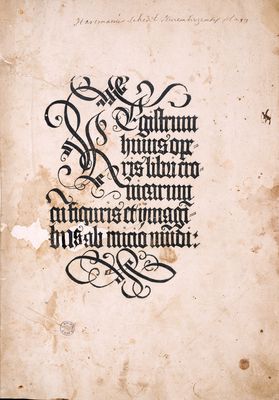 Hartmanni Schedel Nurembergensis
REgistrum
huius ope-
ris libri cro-
nicarum
cū figuris et ymagi-
bus ab inicio mūdi: